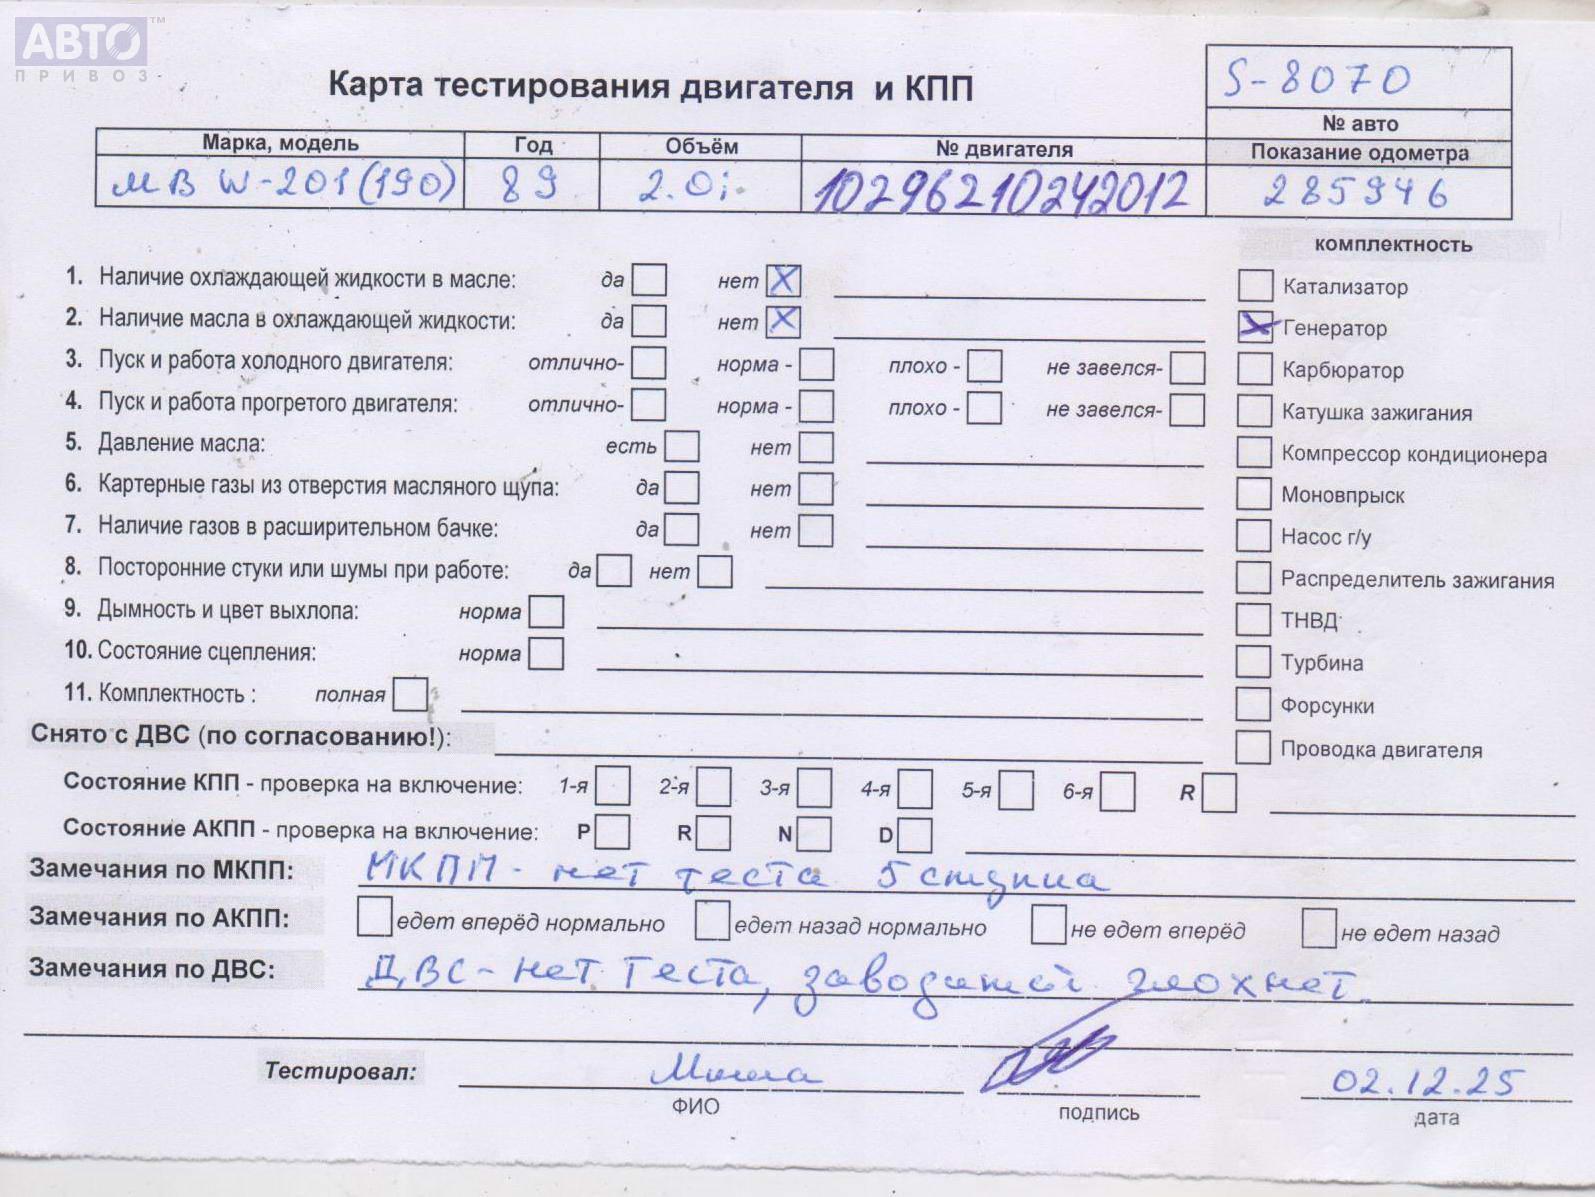 АВТО™
ПРИВОЗ
Карта тестирования двигателя и КПП
S-8070
№ авто
Марка, модель Год Объём № двигателя Показание одометра
МВ W-201 (190) 89 2.0i 10296210242012 285946
комплектность
1. Наличие охлаждающей жидкости в масле: да нет X
Катализатор
2. Наличие масла в охлаждающей жидкости: да нет X
X Генератор
3. Пуск и работа холодного двигателя: отлично- норма - плохо - не завелся-
Карбюратор
4. Пуск и работа прогретого двигателя: отлично- норма - плохо - не завелся-
Катушка зажигания
5. Давление масла: есть нет
Компрессор кондиционера
6. Картерные газы из отверстия масляного щупа: да нет
Моновпрыск
7. Наличие газов в расширительном бачке: да нет
Насос г/у
8. Посторонние стуки или шумы при работе: да нет
Распределитель зажигания
9. Дымность и цвет выхлопа: норма
ТНВД
10. Состояние сцепления: норма
Турбина
11. Комплектность : полная
Форсунки
Снято с ДВС (по согласованию!):
Проводка двигателя
Состояние КПП - проверка на включение: 1-я 2-я 3-я 4-я 5-я 6-я R
Состояние АКПП - проверка на включение: P R N D
Замечания по МКПП: МКПП - нет теста 5 ступка
Замечания по АКПП: едет вперёд нормально едет назад нормально не едет вперёд не едет назад
Замечания по ДВС: ДВС - нет теста, глохнет.
Тестировал: Миша 02.12.25
ФИО подпись дата